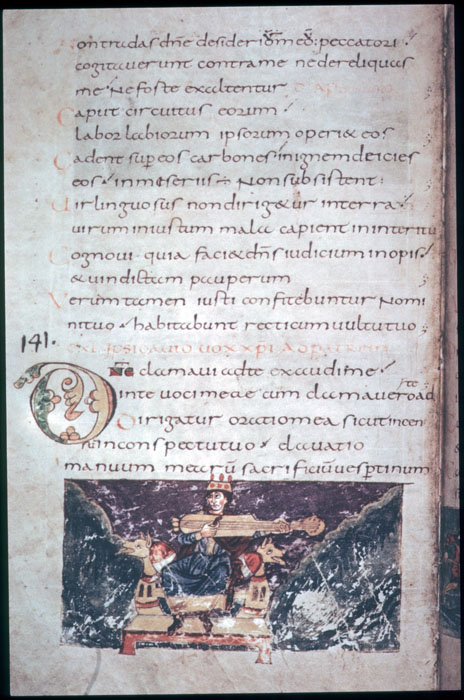 Non tradas dne desiderio meo peccatori
cogitaverunt contra me ne derelinquas
me Ne forte exaltentur
Caput circuitus eorum
labor labiorum ipsorum operi& eos
Cadent super eos carbones in ignem deicies
eos in miseriis Non subsistent
Vir linguosus non dirig&ur in terra
virum iniustum mala capient in interitu
Cognovi quia faci& dns iudicium inopis
& vindictam pauperum
Verum tamen iusti confitebuntur Nomi
ni tuo habitabunt recti cum vultu tuo
141.
Dne clamavi ad te exaudi me
inte voci meae cum clamavero ad
te
Dirigatur oratio mea sicut incen
in conspectu tuo elavatio
manuum mearu sacrificiu vespertinum